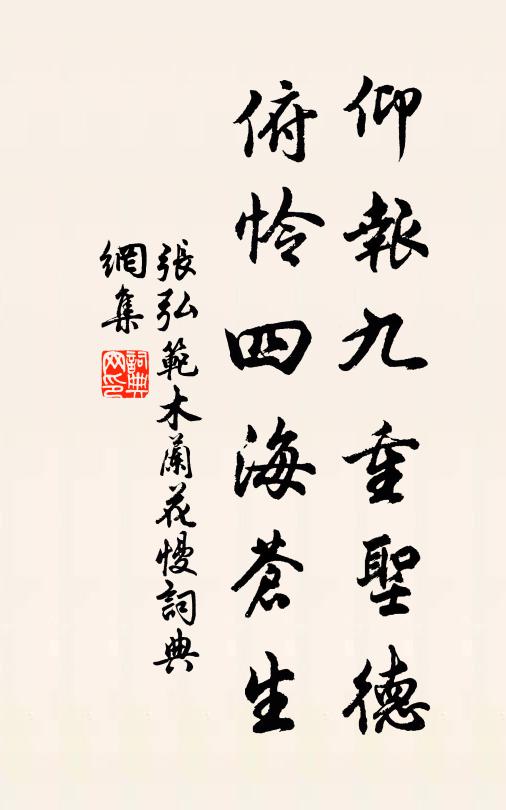 仰報九重聖德
俯憐四海蒼生
張弘範木蘭花慢詞典
網集
詞典
网印